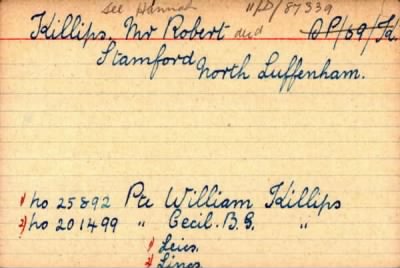 See Hannah 11/D/87339
Killips. Mr Robert died OP/69/K.
Stamford North Luffenham.
1) No 25892 Pte William Killips
2) No 201499 " Cecil. B.G. "
1) Leics.
2) Lincs